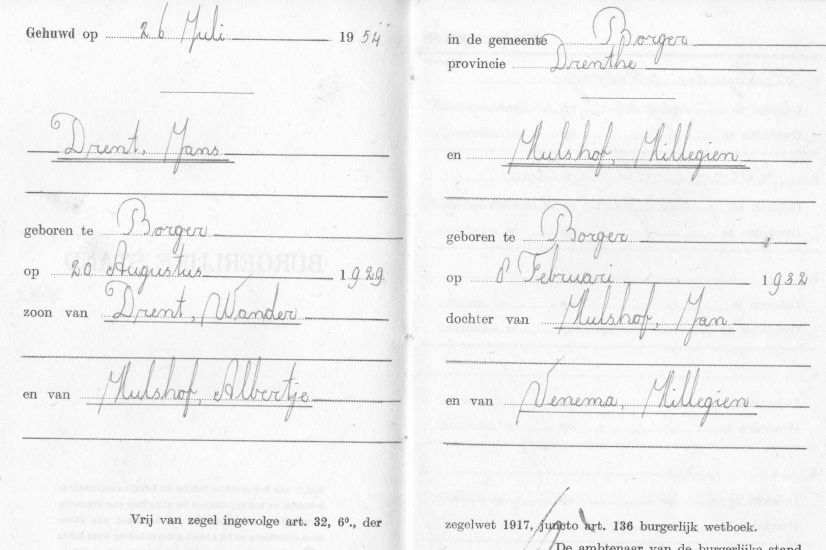 Gehuwd op 26 Juli 1954
Drent, Jans
geboren te Borger
op 20 Augustus 1929
zoon van Drent, Wander
en van Hulshof, Albertje
Vrij van zegel ingevolge art. 32, 6º., der
in de gemeente Borger
provincie Drenthe
en Hulshof, Hillegien
geboren te Borger
op 8 Februari 1932
dochter van Hulshof, Jan
en van Venema, Hillegien
zegelwet 1917, juncto art. 136 burgerlijk wetboek.
De ambtenaar van de burgerlijke stand